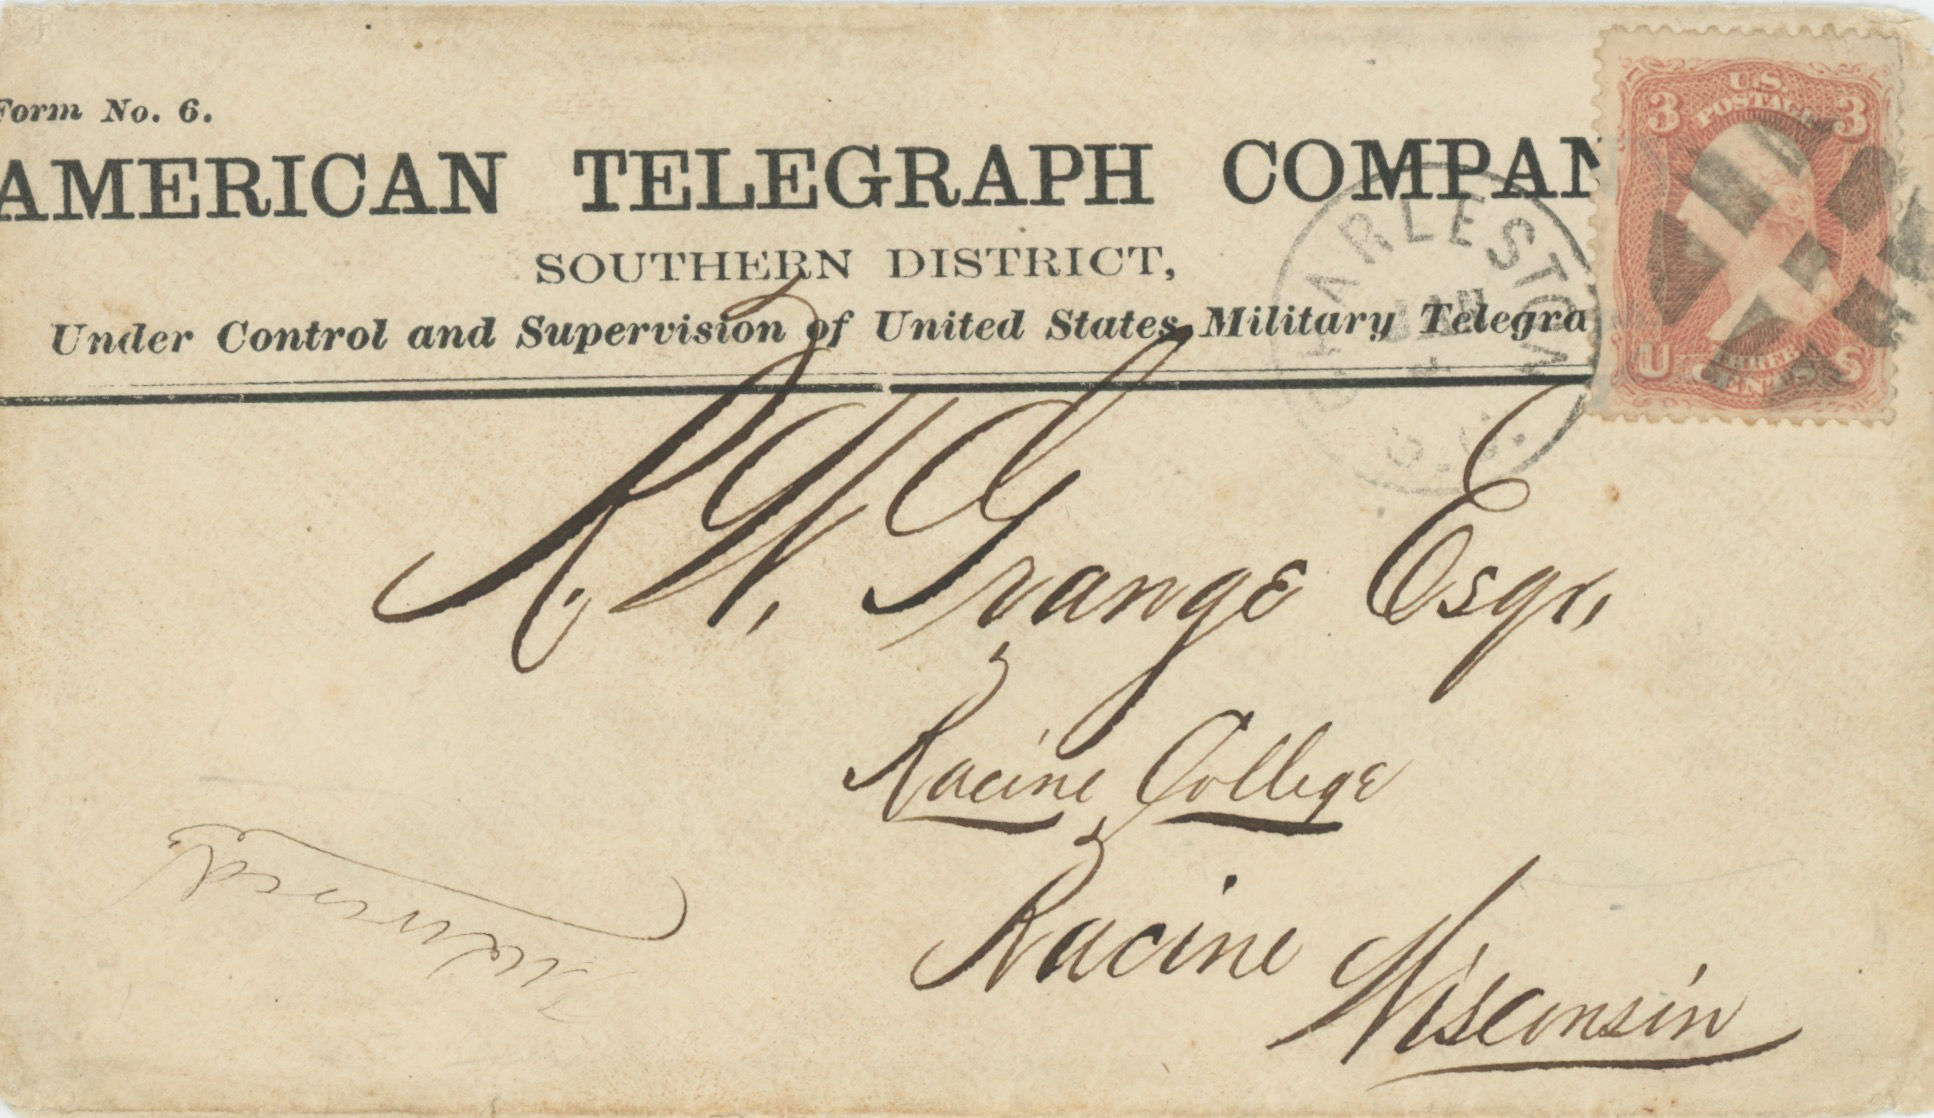 Form No. 6.
AMERICAN TELEGRAPH COMPAN
SOUTHERN DISTRICT,
Under Control and Supervision of United States Military Telegra
U.S. POSTAGE
3 3
U THREE S
CENTS
CHARLESTON
S.C.
R. W. Grange Esqr,
Racine College
Racine
Wisconsin